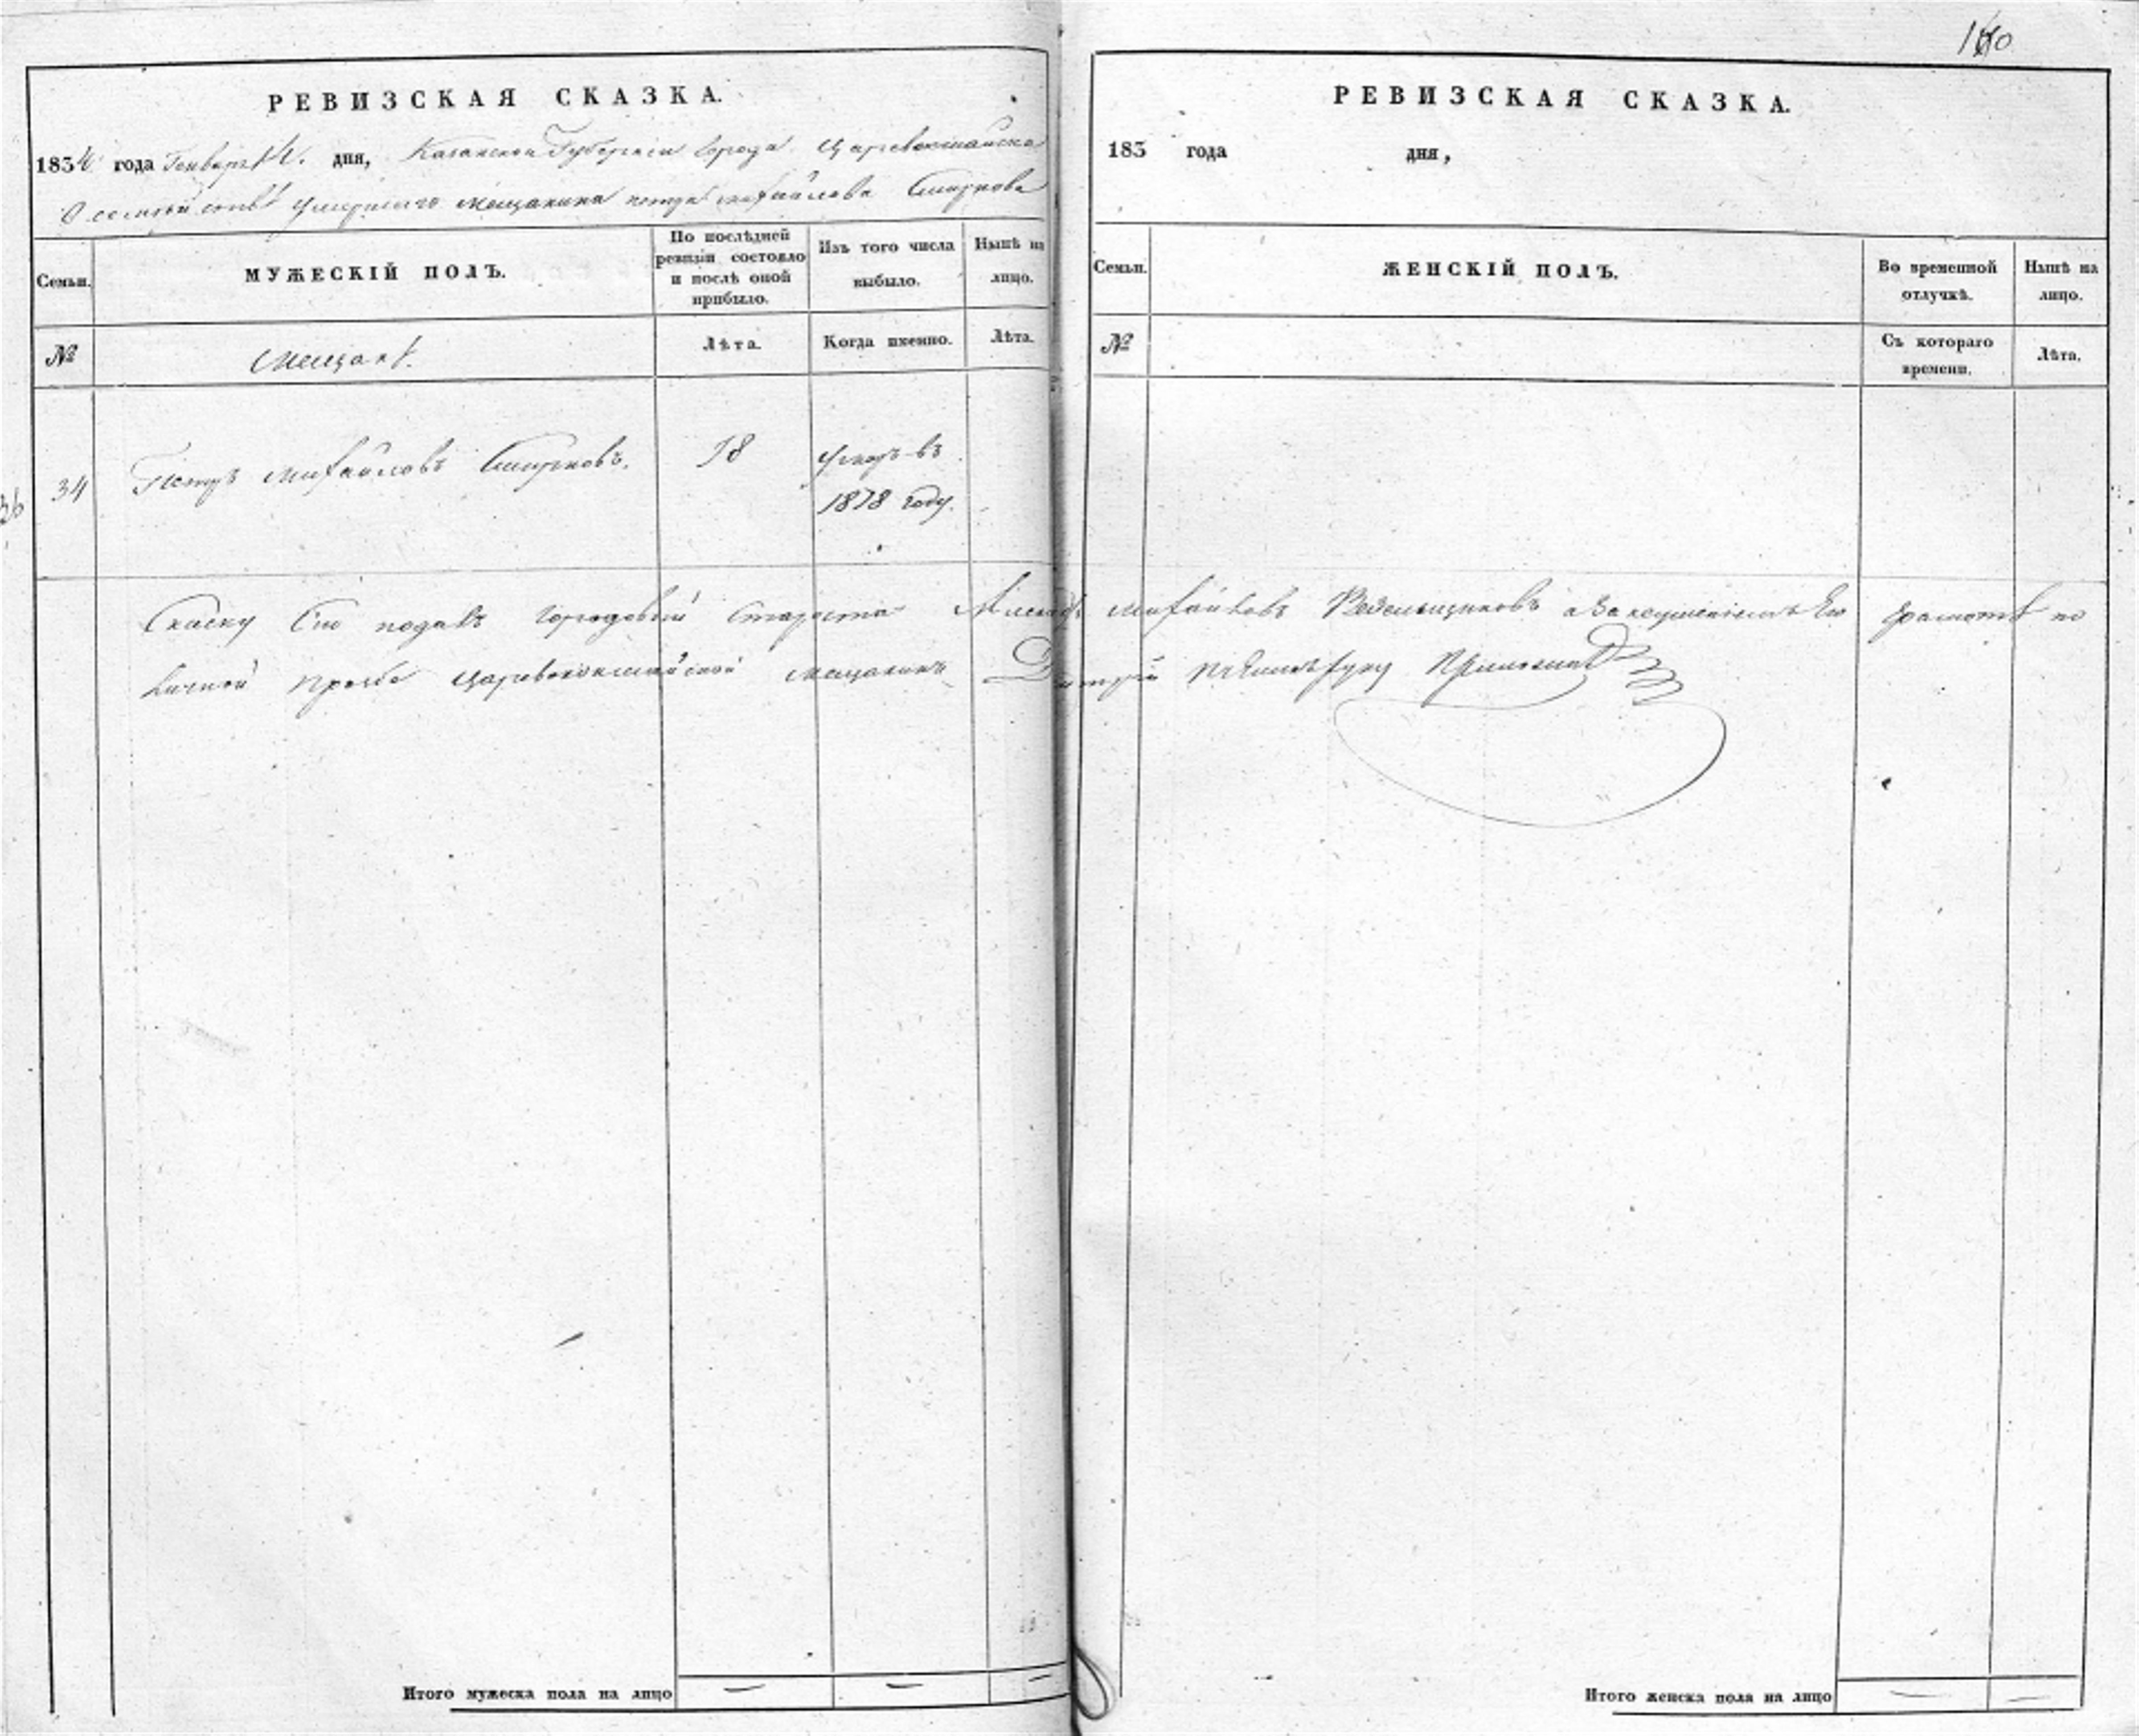 160
РЕВИЗСКАЯ СКАЗКА.
1834 года Генваря дня, Казанской Губернии города Царевококшайска
О семействѣ умершаго мещанина петра михайлова Смирнова
Семьи.
МУЖЕСКІЙ ПОЛЪ.
По послѣдней ревизіи состояло и послѣ оной прибыло.
Изъ того числа выбыло.
Нынѣ на лицо.
№
Мещанѣ.
Лѣта.
Когда именно.
Лѣта.
36
34
Петръ михайловъ Смирновъ.
18
умеръ въ
1818 году.
Итого мужеска пола на лицо
РЕВИЗСКАЯ СКАЗКА.
183 года дня,
Семьи.
ЖЕНСКІЙ ПОЛЪ.
Во временной отлучкѣ.
Нынѣ на лицо.
№
Съ котораго времени.
Лѣта.
Скаску Сію подалъ городовый староста михайловъ а за неумениемъ Ево грамотѣ по
личной прозбе царевококшайской мещанинъ Дмитрій руку приложилъ
Итого женска пола на лицо